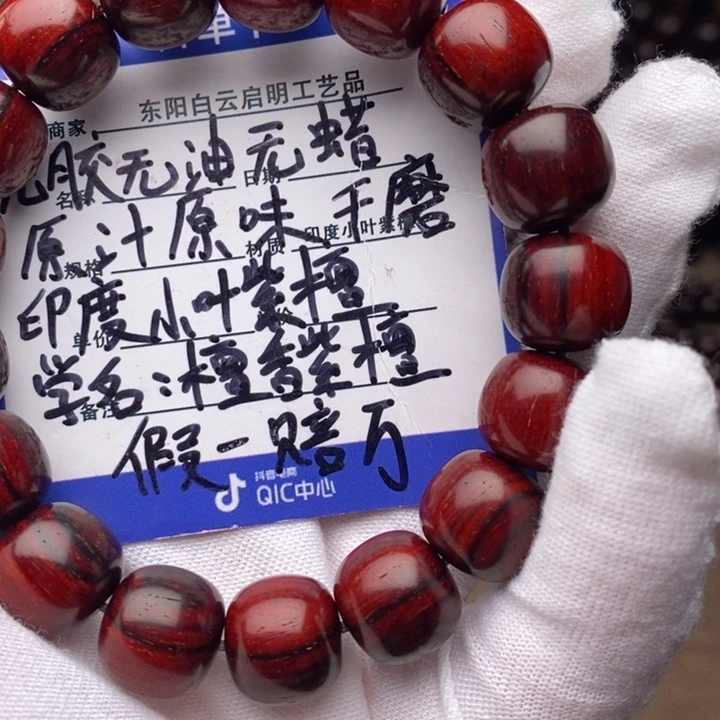 商家 东阳白云启明工艺品
无胶无油无蜡
名称 日期
原汁原味 干磨
规格 材质 印度小叶紫檀
印度小叶紫檀
单价
学名:檀香紫檀
备注
假一赔万
抖音电商
QIC中心